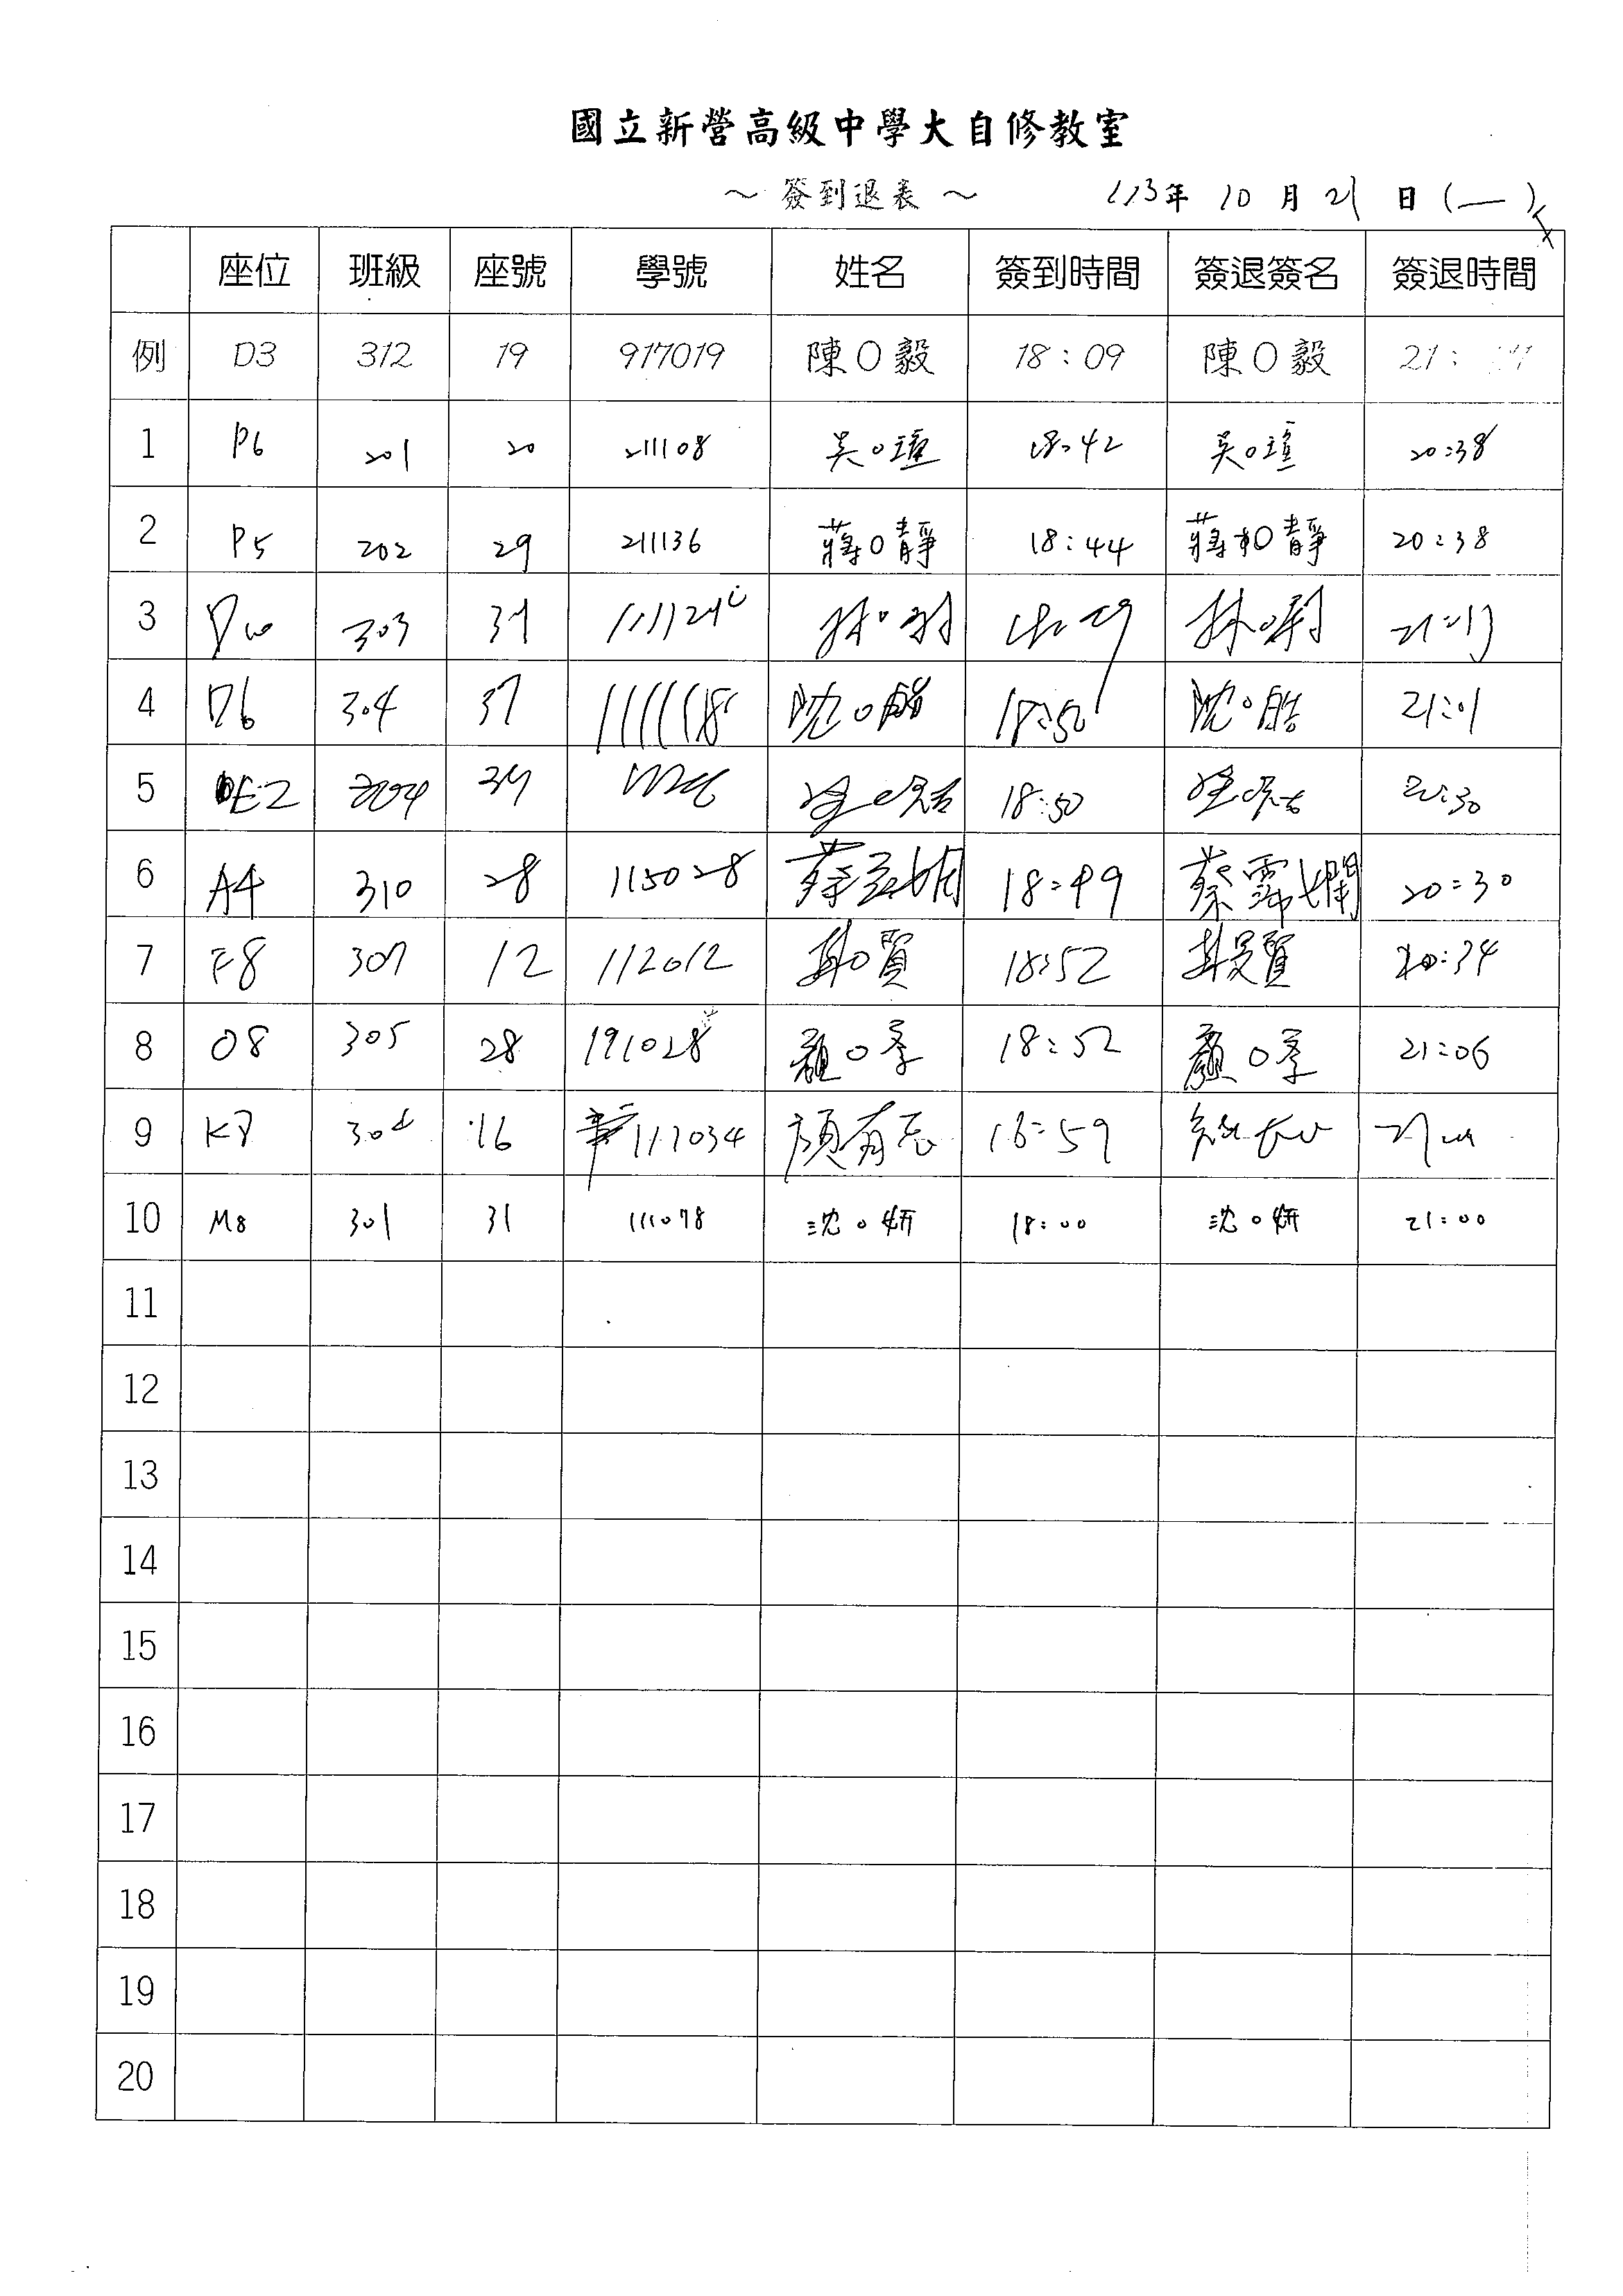 國立新營高級中學大自修教室
～簽到退表～ 113年 10 月 21 日 (一)
座位 班級 座號 學號 姓名 簽到時間 簽退簽名 簽退時間
例 D3 312 19 917019 陳O毅 18:09 陳O毅 21:
1 P6 201 20 211108 吳O瑄 18:42 吳O瑄 20:38
2 P5 202 29 211136 蔣O靜 18:44 蔣O靜 20:38
3 303 31 林O
4 D6 304 37 沈O 18:50 沈O 21:01
5 E2 18:50 20:30
6 A4 310 28 115028 蔡 18:49 蔡霈嫻 20:30
7 F8 307 12 112012 18:52 20:34
8 O8 305 28 191028 顏O季 18:52 顏O季 21:06
9 K8 304 16 111034 顏有志 18:59
10 M8 301 31 111078 沈O妍 18:00 沈O妍 21:00
11
12
13
14
15
16
17
18
19
20